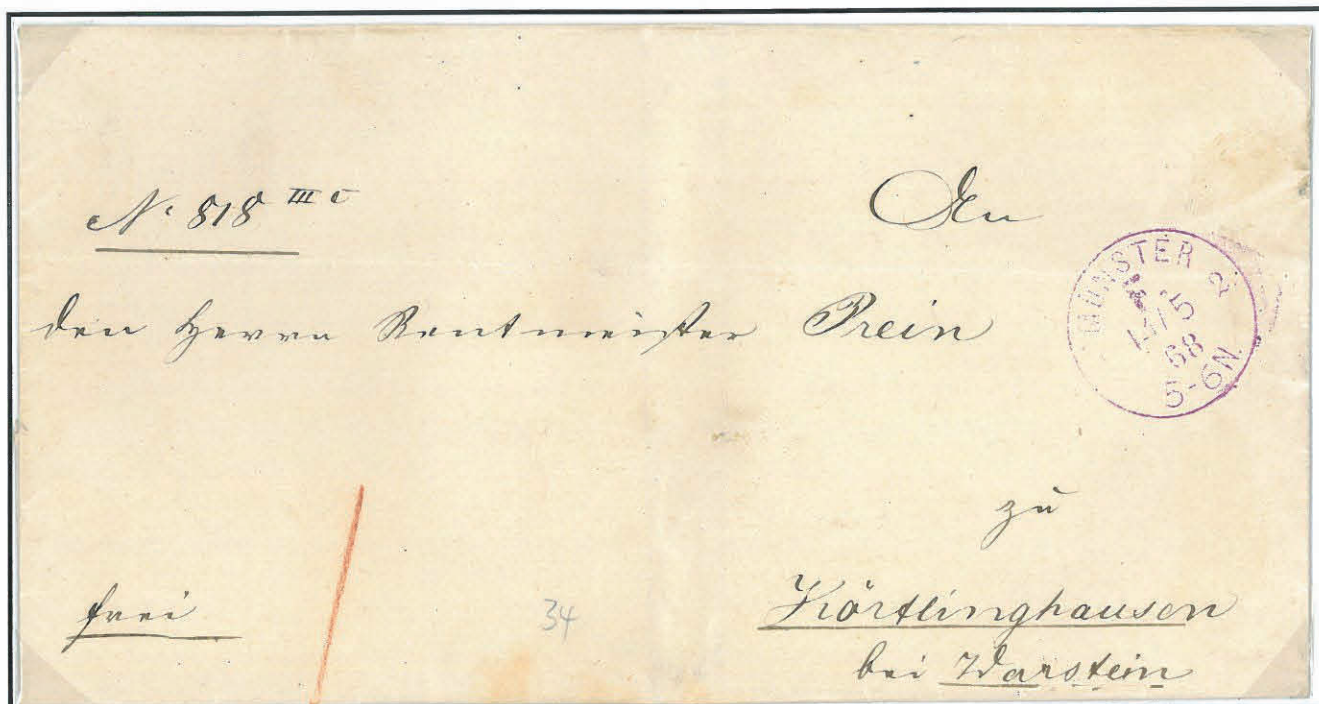 No 818 III c
An
den Herrn Rentmeister Prein
MÜNSTER 2
14/5
68
5-6N.
zu
frei
34
Körtlinghausen
bei Warstein